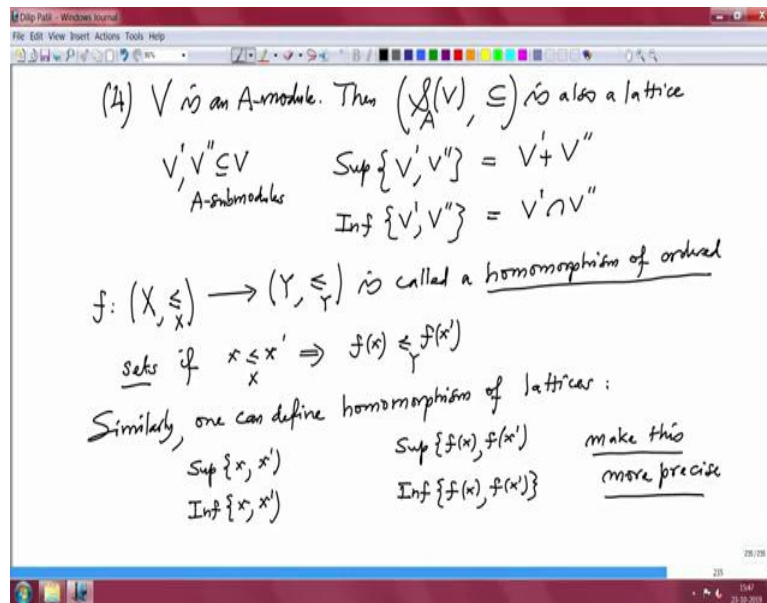 Dilip Patil - Windows Journal
File Edit View Insert Actions Tools Help
(4) V is an A-module. Then (𝒮_A(V), ⊆) is also a lattice
V', V'' ⊆ V Sup {V', V''} = V' + V''
A-submodules
Inf {V', V''} = V' ∩ V''
f: (X, ≤_X) ⟶ (Y, ≤_Y) is called a homomorphism of ordered
sets if x ≤_X x' ⇒ f(x) ≤_Y f(x')
Similarly, one can define homomorphism of lattices :
Sup {x, x'} Sup {f(x), f(x') make this
Inf {x, x'} Inf {f(x), f(x')} more precise
235/235
235
15:47
23-10-2019